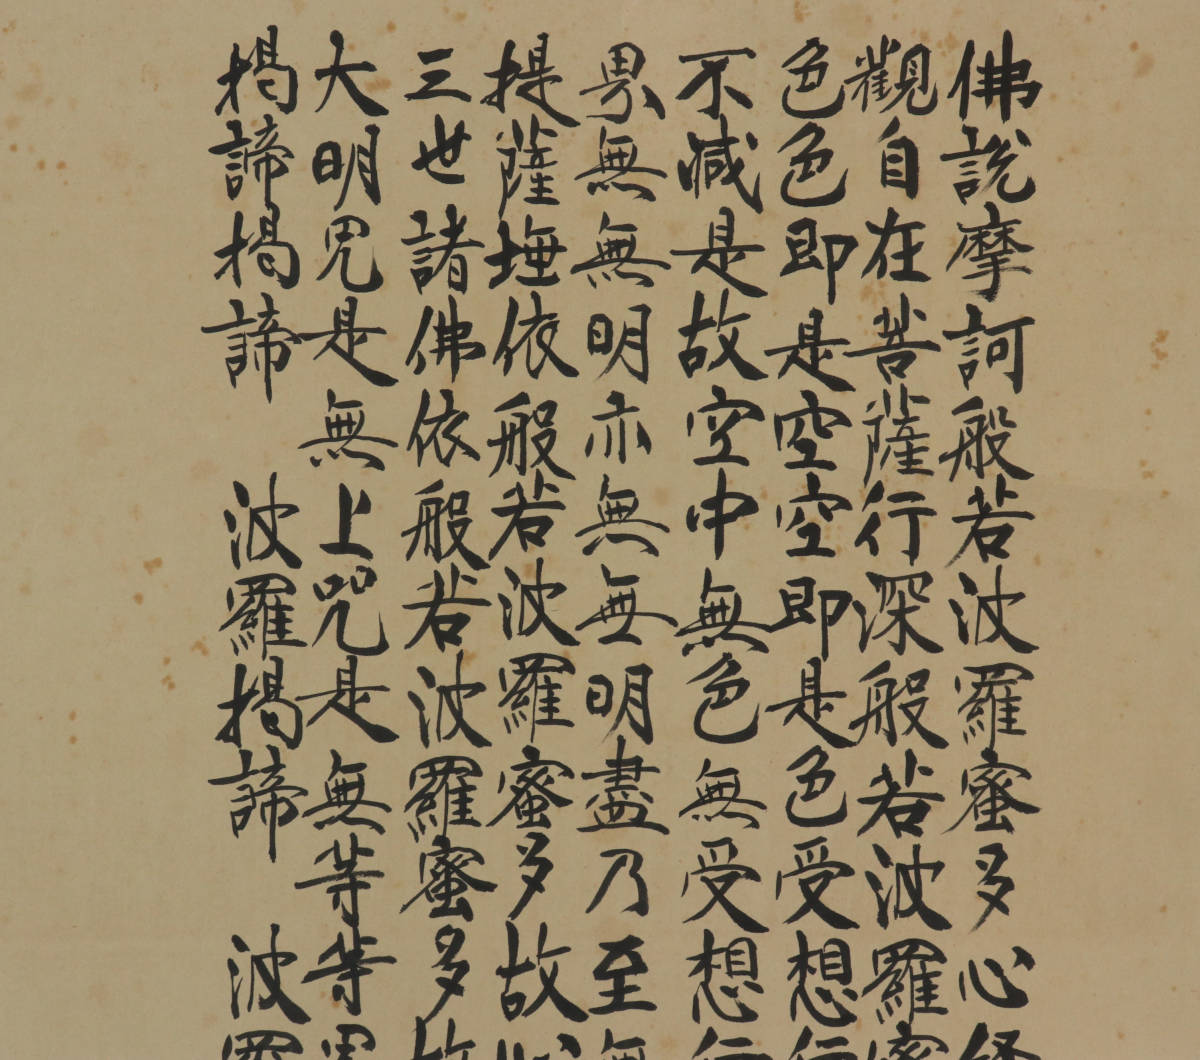 佛說摩訶般若波羅蜜多心經
觀自在菩薩行深般若波羅蜜
色色即是空空即是色受想行
不減是故空中無色無受想行
界無無明亦無無明盡乃至無
提薩埵依般若波羅蜜多故
三世諸佛依般若波羅蜜多故
大明咒是無上咒是無等等咒
揭諦揭諦 波羅揭諦 波羅